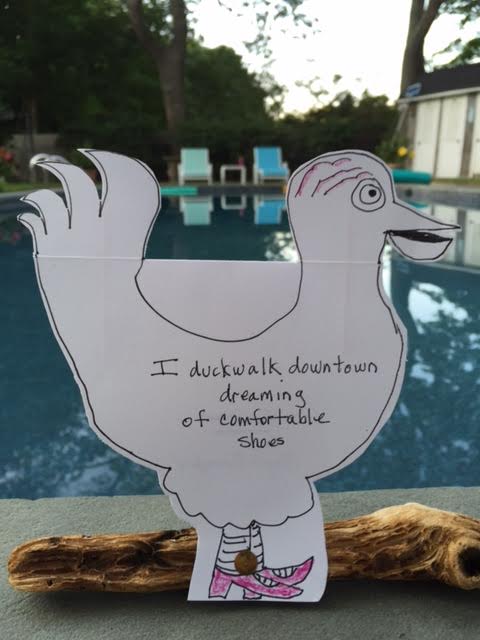 I duckwalk downtown
dreaming
of comfortable
shoes